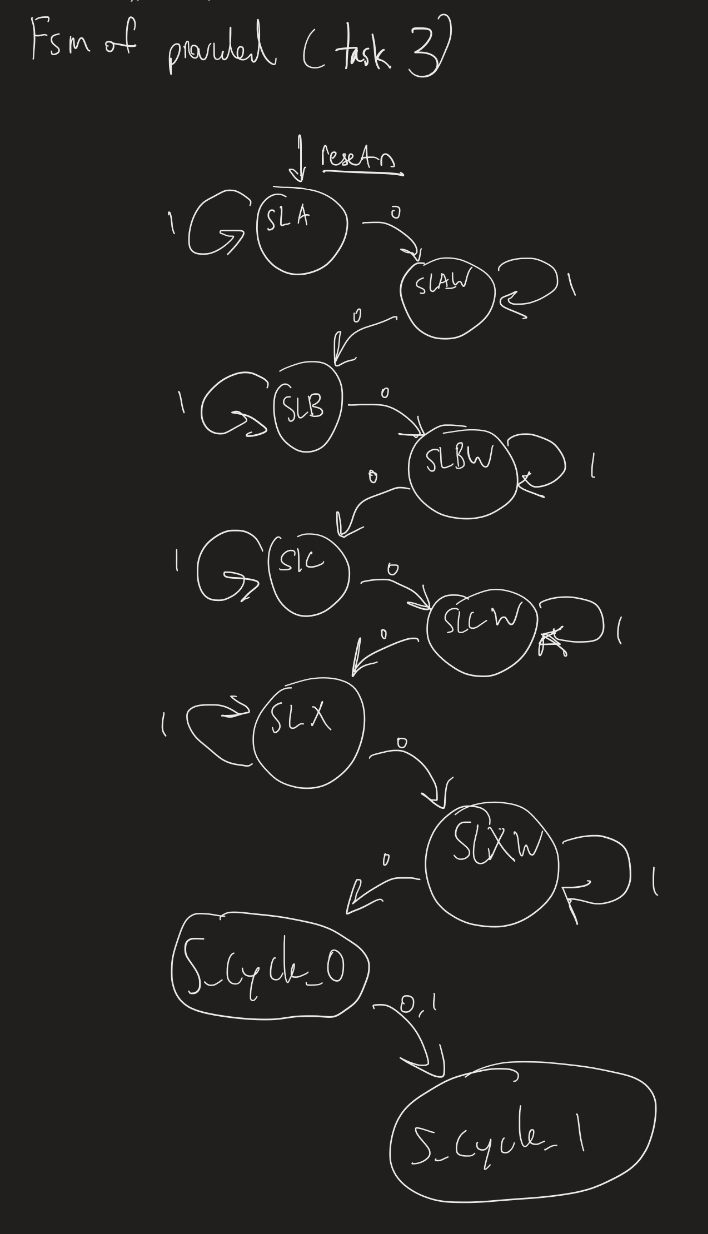 Fsm of provided (task 3)
resetn
1
SLA
0
SLAW
1
0
1
SLB
0
SLBW
1
0
1
SLC
0
SLCW
1
0
1
SLX
0
SLXW
1
0
S_cycle_0
0,1
S_cycle_1